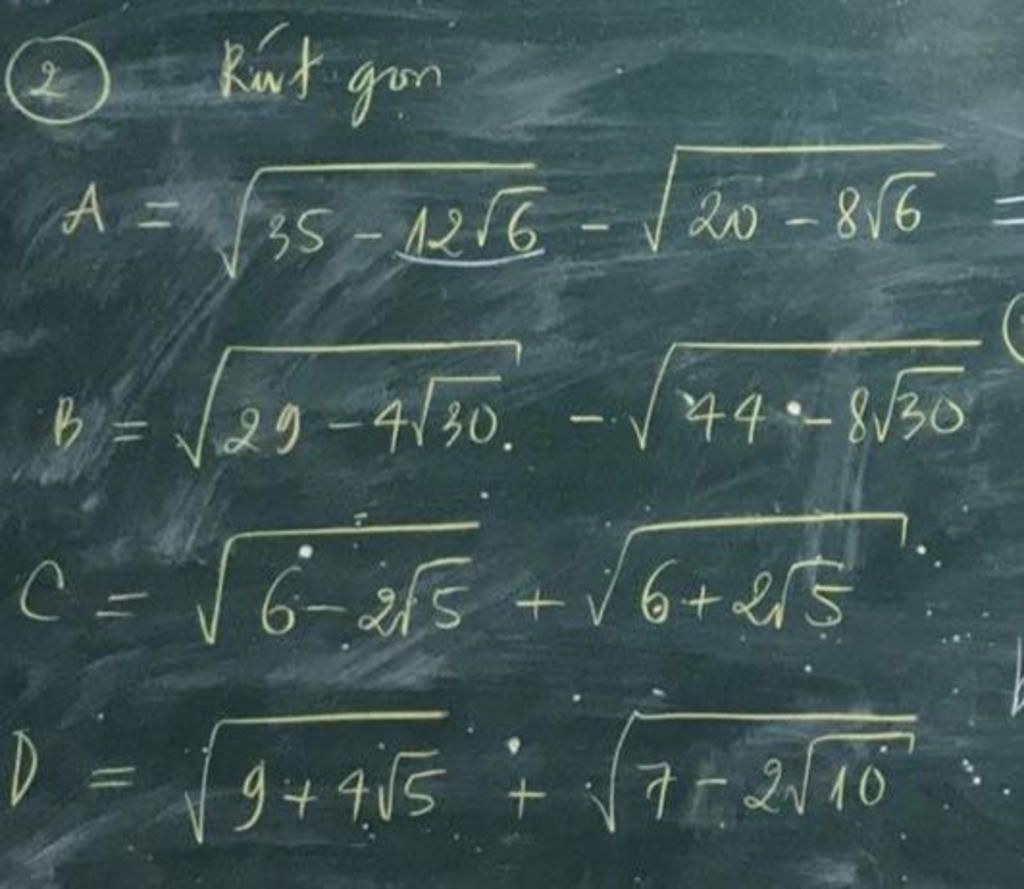 ② Rút gọn
A = √(35 - 12√6) - √(20 - 8√6) =
B = √(29 - 4√30) - √(44 - 8√30)
C = √(6 - 2√5) + √(6 + 2√5)
D = √(9 + 4√5) + √(7 - 2√10)